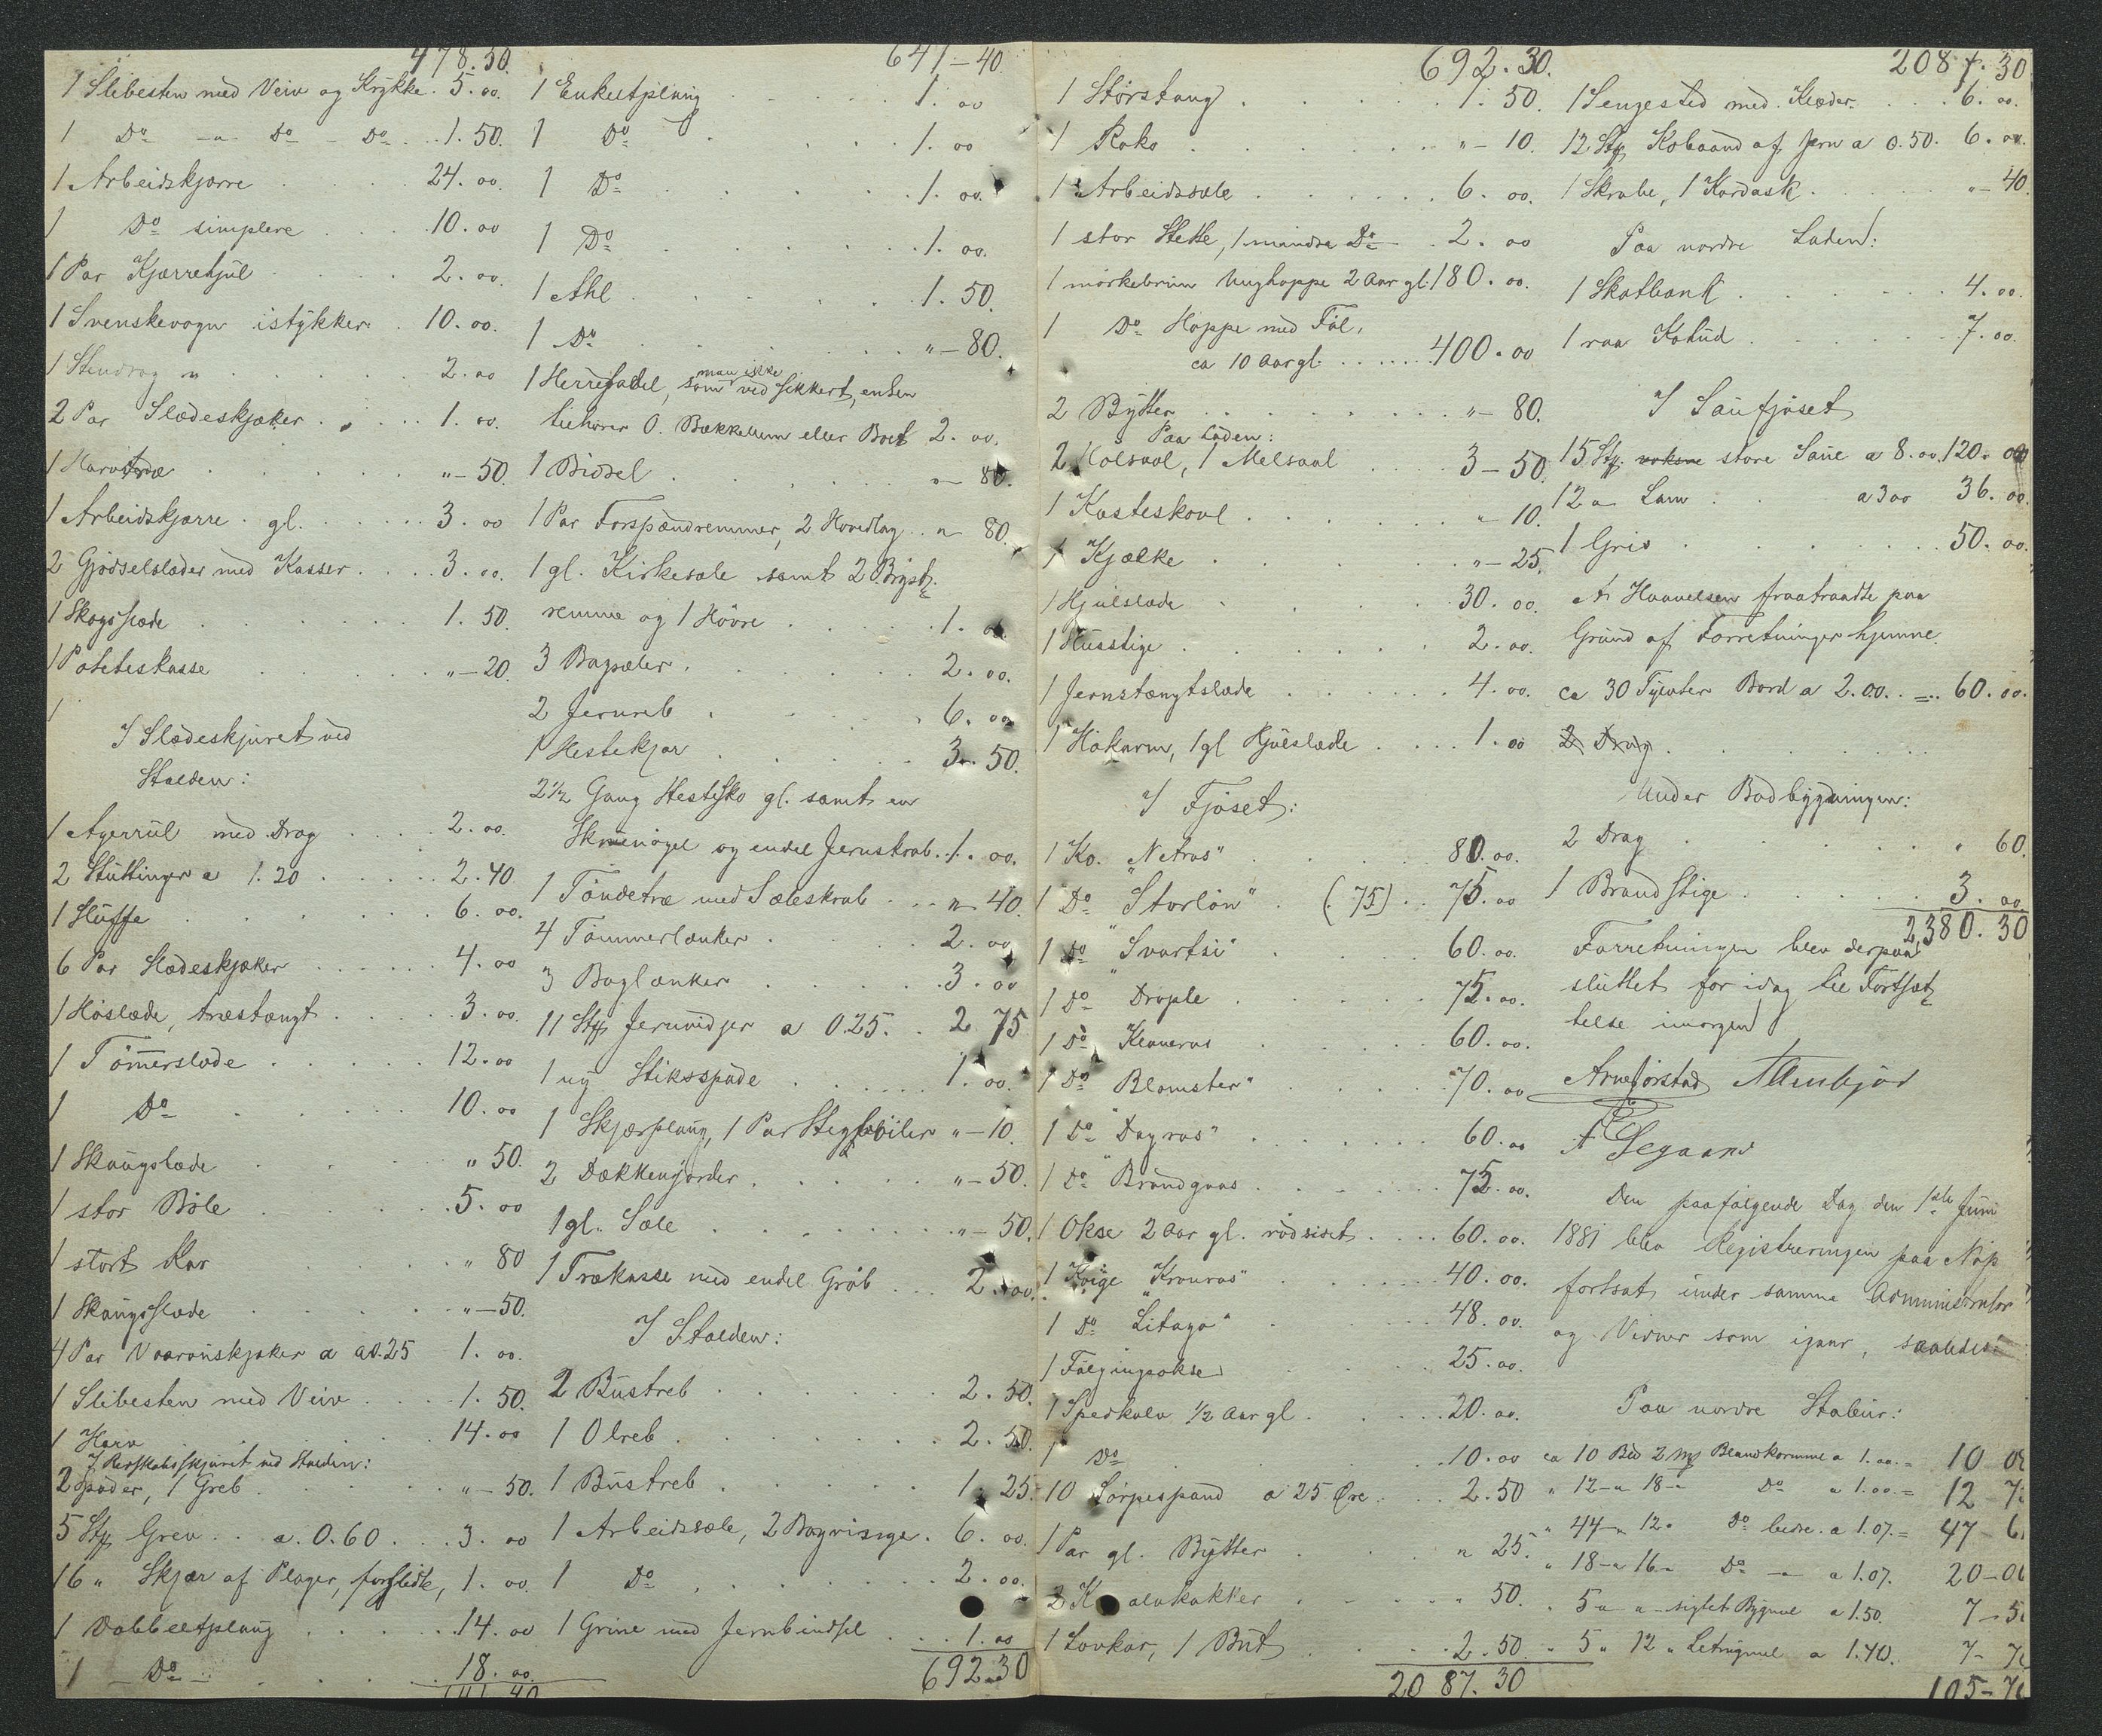 478.50.
1 Slibesten med Veiv og Krykke . 5. 00.
1 Do - " - Do - Do . . 1. 50.
1 Arbeidskjærre . . . 24. 00.
1 Do simplere . . . 10. 00
1 Par Kjærrehjul . . . 2. 00.
1 Svenskevogn istykker . 10. 00.
1 Stendrag " . . . 2. 00
2 Par Slædeskjæker . . . 1. 00.
1 Harvetræ . . . " - 50.
1 Arbeidskjærre . gl. . . . 3. 00
2 Gjødselslæder med Kasser . . . 3. 00.
1 Skogslæde . . . 1. 50.
1 Poteteskasse . . . " - 20.
1
I Slædeskjuret ved
Stalden:
1 Agerrul med Drag . . . 2. 00.
2 Stuttinger a 1.20 . . . 2. 40
1 Sluffe . . . 6. 00.
6 Par Slædeskjæker . . . 4. 00
1 Høslæde, træstængt . . . 3. 00.
1 Tømmerslæde . . . 12. 00
1 Do . . . 10. 00
1 Skougslæde . . . " 50.
1 stor Bøle . . . 5. 00
1 stort Kar . . . " 80
1 Skougslæde . . . " - 50.
4 Par Vaaronskjæker a a0.25 1. 00.
1 Slibesten med Veiv . . . 1. 50.
1 Harv . . . 14. 00
I Redskabsskjuret ved Stalden:
2 Spader, 1 Greb . . . " - 50.
5 Stk Grev . . a. 0.60 . . . 3. 00
16 " Skjær af Ploger, forslidte, 1. 00.
1 Dobbeltploug . . . 14. 00
1 - Do - . . . 18. 00.
641 - 40
1 Enkeltploug . . . 1. 00
1 Do . . . 1. 00
1 Do . . . 1. 00.
1 Do . . . 1. 00.
1 Ahl . . . 1. 50.
1 Do . . . " - 80.
1 Herresadel, som man ikke ved sikkert, enten
tilhører O. Bækkelum eller Boet 2. 00.
1 Bidsel . . . " - 80.
1 Par Forspændremmer, 2 Hovedlag . . " 80.
1 gl. Kirkesæle samt 2 Bryst-
remme og 1 Høvre . . . 1. 00
3 Bagpæler . . . 2. 00.
2 Jernreb . . . 6. 00
1 Hestekjær . . . 3. 50.
2 1/2 Gang Hestesko gl. samt en
Skruenøgel og endel Jernskrab . . 1. 00.
1 Tøndetræ med Sæleskrab . . . " - 40.
4 Tømmerlænker . . . 2. 00
3 Baglænker . . . 3. 00
11 Stk Jernvidjer a 0.25. . 2. 75
1 ny Stikspade . . . 1. 00.
1 Skjærploug, 1 Par " - 10.
2 Dækkengjorder . . . " - 50.
1 gl. Sæle . . . " - 50.
1 Trækasse med endel Grøb . . . 2. 00.
I Stalden:
2 Bustreb . . . 2. 50.
1 Olreb . . . 2. 50.
1 Bustreb . . . 1. 25.
1 Arbeidssæle, 2 Bogvisuger . 6. 00.
1 Do . . . 2. 00.
1 Grime med Jernbindsel . . . 1. 00
692.30
692.30.
1 Störstang . . . 1. 50.
1 Rako . . . " - 10.
1 Arbeidssæle . . . 6. 00.
1 stor Slette, 1 mindre Do . 2. 00
1 mørkebrun Unghoppe 2 Aar gl. 180. 00.
1 Do Hoppe med Føl,
ca 10 Aar gl. . . . 400. 00
2 Bytter . . . " - 80.
Paa Laden:
2 Kolsaal, 1 Melsaal . . . 3 - 50.
1 Kasteskovl . . . " - 10.
1 Kjælke . . . " - 25.
1 Hjulslæde . . . 30. 00.
1 Husstige . . . 2. 00.
1 Jernstængtslæde . . . 4. 00.
1 Høkarm, 1 gl Hjulslæde . . . 1. 00
I Fjøset:
1 Ko. "Netros" . . . 80. 00.
1 Do "Storlön" . (75) . . 75. 00
1 Do "Svartsi" . . . 60. 00.
1 Do "Drople . . . 75. 00.
1 Do Kranros . . . 60. 00.
1 Do Blomster" . . . 70. 00
1 Do "Dagros" . . . 60. 00
1 Do "Brandgaas . . . 75. 00.
1 Okse 2 Aar gl. rødsiset . . . 60. 00.
1 Kvige "Kronros" . . . 40. 00.
1 Do "Litago" . . . 48. 00.
1 Følgingsokse . . . 25. 00.
1 Spedkalv 1/2 Aar gl. . . . 20. 00.
1 Do . . . 10. 00
10 Sørpespand a 25 Øre . . . 2. 50
1 Par gl. Bytter . . . " 25.
2 K alvkakker . . . " 50.
1 Lovkar, 1 But . . . 2. 50
2087. 30
2087. 30
1 Sengested med Klæder . . . 6. 00.
12 Stk Kobaand af Jern a 0.50. 6. 00.
1 Skrabe, 1 Kardask . . . " - 40.
Paa nordre Laden:
1 Skatbank . . . 4. 00.
1 raa Kohud . . . 7. 00.
I Saufjøset
15 Stk. voksne store Saue a 8.00. 120. 00
12 " Lam . . a 3 00 36. 00.
1 Gris . . . 50. 00.
A Haavelsen fraatraadte paa
Grund af Forretninger hjemme.
ca 30 Tylvter Bord a 2.00. . = . 60. 00.
2 Drag . . .
Under Bodbygningen:
2 Drag . . . " 60.
1 Brandstige . . . 3. 00.
2380. 30
Forretningen blev derpaa
sluttet for idag til Fortsæt-
telse imorgen
Arne Jorstad
A Segaard
Den paafølgende Dag den 1ste Juni
1881 blev Registreringen paa Nøp
fortsat under samme Administrator
og Vidner som igaar, saaledes:
Paa nordre Stabur:
ca 10 Bid 2 Mk Blandkornmel a 1.00. = 10 00
" 12 - " 18 - " Do a 1.00. = 12 - 7
" 44 - " 12 " Do bedre. a 1.07. = 47 - 6
" 18 - " 16 - " Do - " - a 1.07. 20 - 00
" 5 - " - " - sigtet Bygmel a 1.50. 7 - 5
" 5 " 12 " Letrugmel a 1.40. 7 - 7
105 - 7